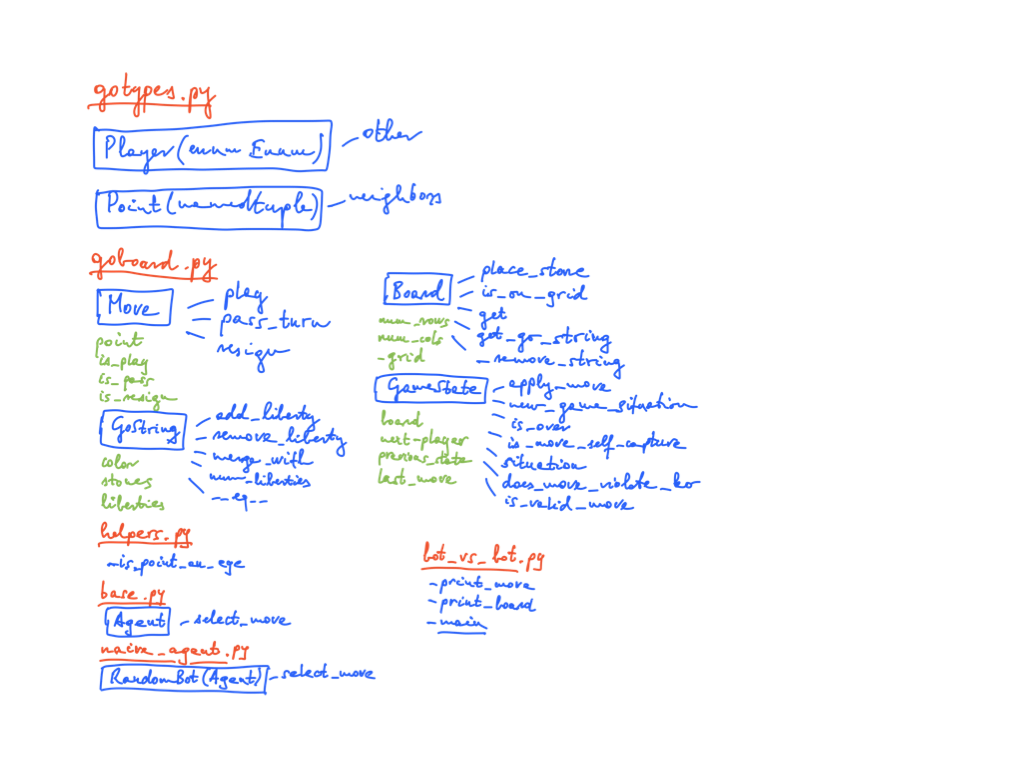 gotypes.py
Player(enum Enum)
other
Point(namedtuple)
neighbors
goboard.py
Move
play
pass_turn
resign
point
is_play
is_pass
is_resign
GoString
add_liberty
remove_liberty
merge_with
num_liberties
__eq__
color
stones
liberties
Board
place_stone
is_on_grid
get
get_go_string
_remove_string
num_rows
num_cols
-grid
GameState
apply_move
new_game_situation
is_over
is_move_self_capture
situation
does_move_violate_ko
is_valid_move
board
next-player
previous_state
last_move
helpers.py
-is_point_an_eye
base.py
Agent
select_move
naive_agent.py
RandomBot(Agent)
select_move
bot_vs_bot.py
-print_move
-print_board
-main